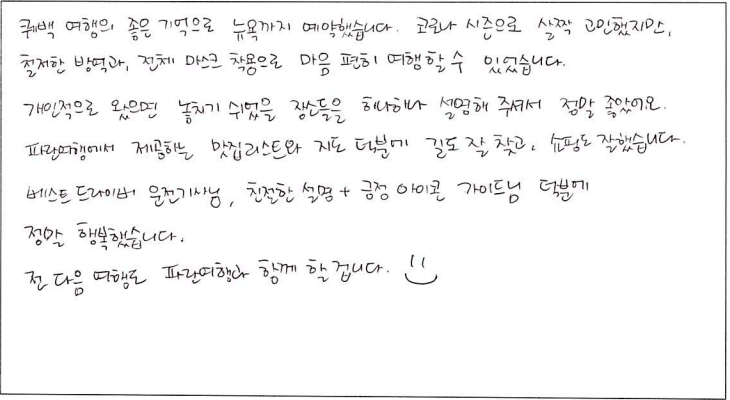 퀘백 여행의 좋은 기억으로 뉴욕까지 예약했습니다. 코로나 시즌으로 살짝 고민했지만,
철저한 방역과, 전체 마스크 착용으로 마음 편히 여행할 수 있었습니다.
개인적으로 왔으면 놓치기 쉬웠을 장소들을 하나하나 설명해 주셔서 정말 좋았어요.
파란여행에서 제공하는 맛집리스트와 지도 덕분에 길도 잘 찾고, 쇼핑도 잘했습니다.
베스트 드라이버 운전기사님, 친절한 설명 + 긍정 아이콘 가이드님 덕분에
정말 행복했습니다.
전 다음 여행도 파란여행과 함께 할 겁니다.